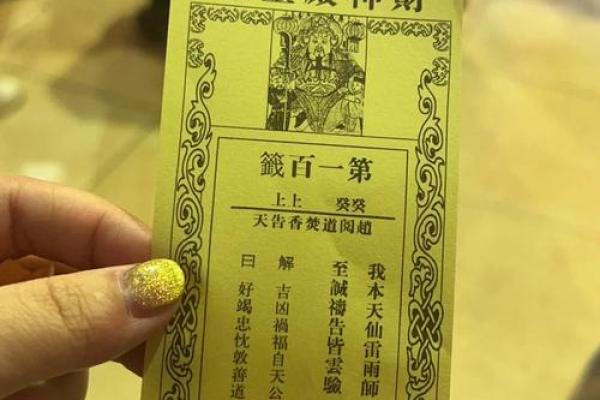 財神殿
第一百籤
癸癸 上上
趙閱道焚香告天
我本天仙雷雨師
至誠禱告皆雲驗
解 吉凶禍福自天公
曰 好竭忠忱敦善道